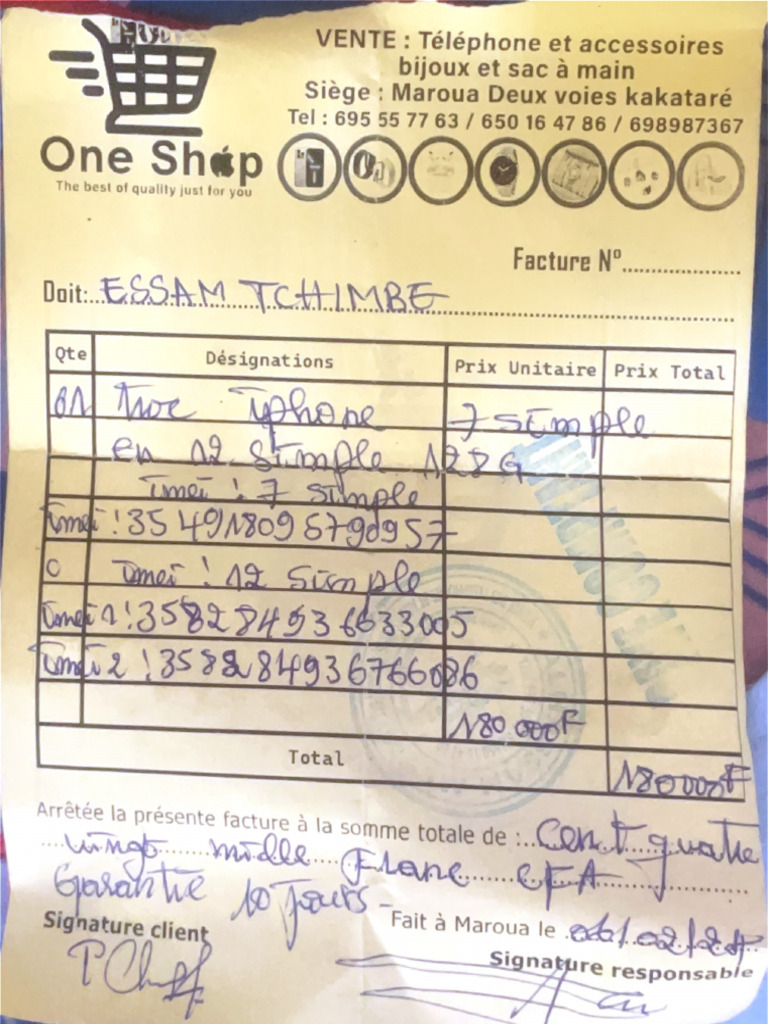 VENTE : Téléphone et accessoires
bijoux et sac à main
Siège : Maroua Deux voies kakataré
Tel : 695 55 77 63 / 650 16 47 86 / 698987367
One Shop
The best of quality just for you
Facture N°
Doit: ESSAM TCHIMBE
Qte Désignations Prix Unitaire Prix Total
01 troc iphone 7 simple
en 12 simple 128G
imei : 7 simple
imei : 354918095790957
imei : 12 simple
imei 1 : 358284936633005
imei 2 : 358284936766086
180 000F
Total 180 000F
Arrêtée la présente facture à la somme totale de : Cent quatre
vingt mille Franc CFA
Garantie 10 Jours -
Signature client
Fait à Maroua le
Signature responsable